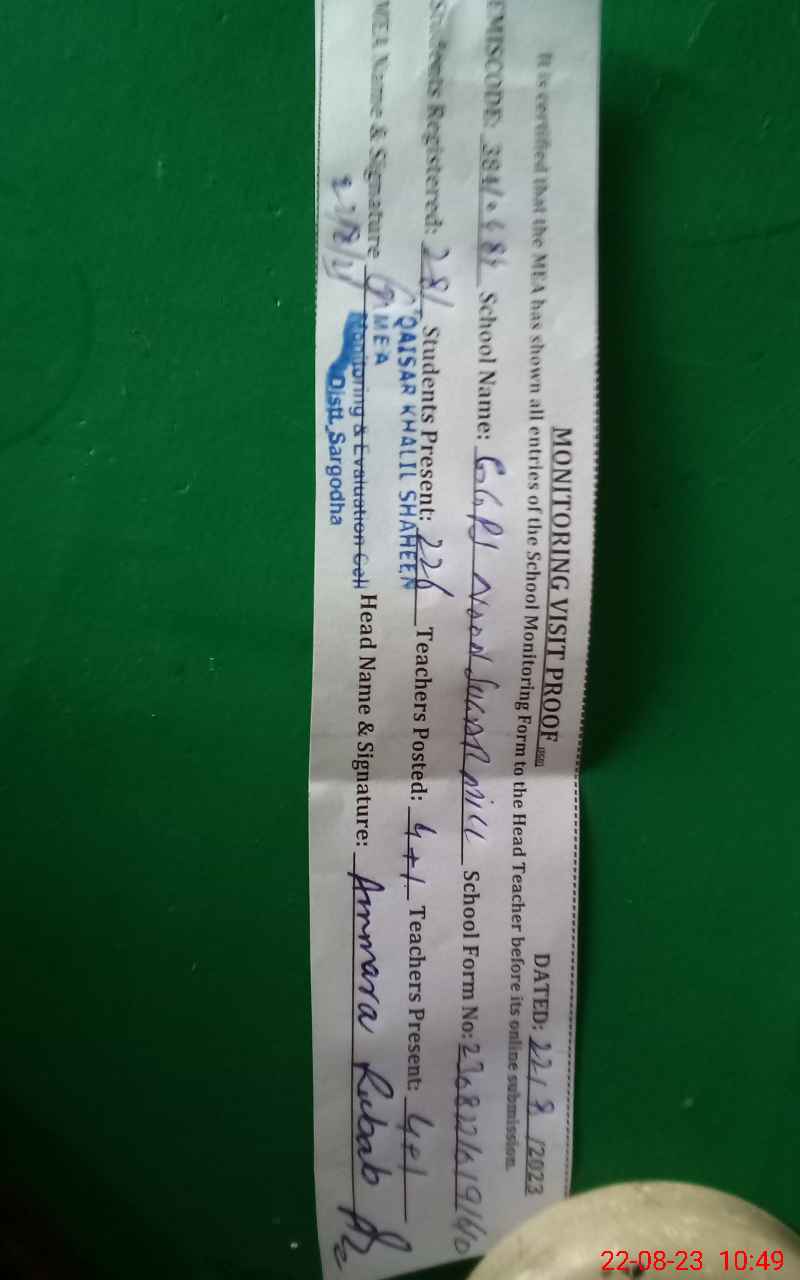 MONITORING VISIT PROOF DATED: 22/8/2023
It is certified that the MEA has shown all entries of the School Monitoring Form to the Head Teacher before its online submission.
EMISCODE: School Name: School Form No:
Students Registered: 281 Students Present: 226 Teachers Posted: 4+1 Teachers Present: 4+1
MEA Name & Signature Head Name & Signature: Ammara Rubab
QAISAR KHALIL SHAHEEN
MEA
Monitoring & Evaluation Cell
Distt. Sargodha
22-08-23 10:49